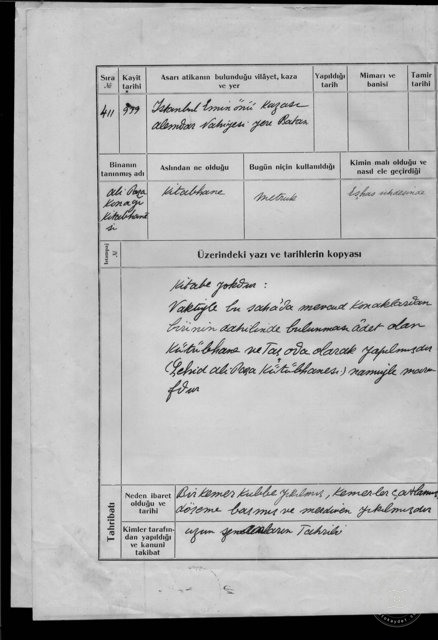 Sıra № Kayit tarihi Asarı atikanın bulunduğu vilâyet, kaza ve yer Yapıldığı tarih Mimarı ve banisi Tamir tarihi
411 939 İstanbul Eminönü Kazası
alemdar Nahiyesi yeri Batan
Binanın tanınmış adı Aslından ne olduğu Bugün niçin kullanıldığı Kimin malı olduğu ve nasıl ele geçirdiği
ali Paşa Konağı Kitabhanesi Kitabhane Metruk Eşhas uhdesinde
İstampaj № Üzerindeki yazı ve tarihlerin kopyası
Kitabe yokdur :
Vaktiyle bu sahâda mevcud Konaklardan
birinin dahilinde bulunması âdet olan
Kütübhane ve Taş oda olarak yapılmışdır
(Şehid ali Paşa Kütübhanesi) namiyle maru
fdur
Tahribatı
Neden ibaret olduğu ve tarihi
Bir kemer Kubbe yıkılmış, Kemerler çatlamış
döşeme basmış ve merdiven yıkılmışdır
Kimler tarafından yapıldığı ve kanunî takibat
uzun senelerin Tahribi